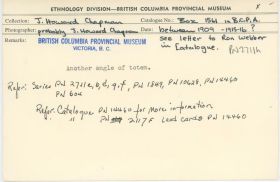 ETHNOLOGY DIVISION—BRITISH COLUMBIA PROVINCIAL MUSEUM
Collection: J. Howard Chapman Catalogue No.: Box 1561 in B.C.P.A.
Photographer: probably J. Howard Chapman Date: between 1909-1915-16?
Remarks: see letter to Ron Weber
BRITISH COLUMBIA PROVINCIAL MUSEUM in Catalogue.
VICTORIA, B.C. PN2711h
Another angle of totem.
Refer: Series PN 2711 e, b, g, f, PN 1849, PN 10628, PN 14460
PN 604
Refer: Catalogue PN 14460 for more information
PN 2117 F Lead card PN 14460